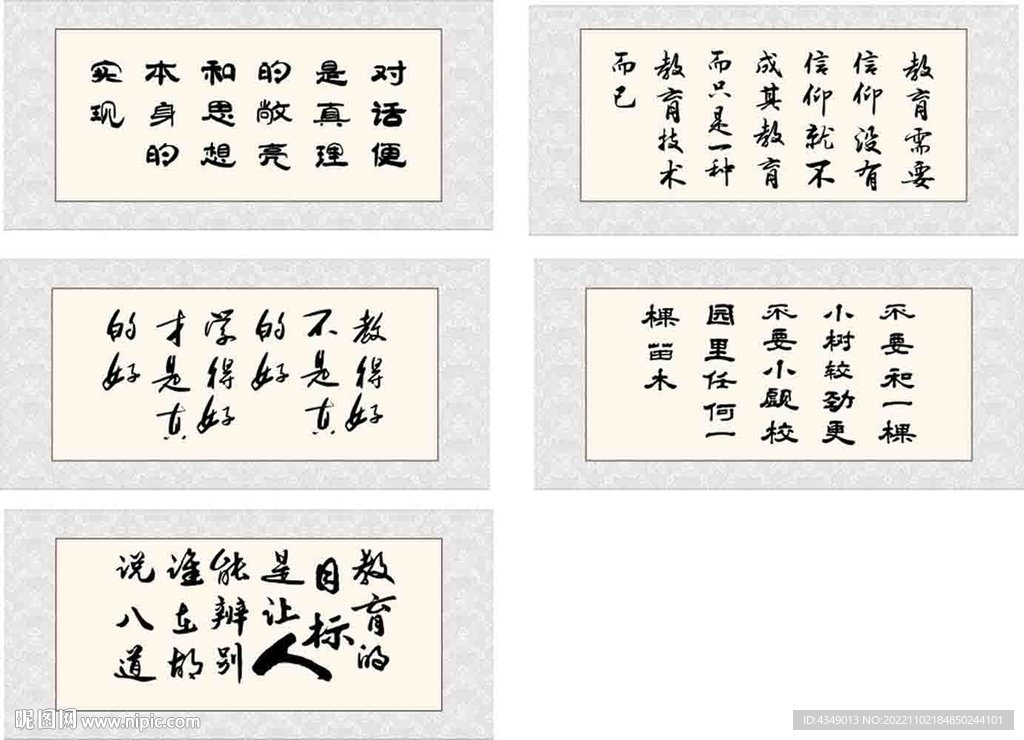 对话便
是真理
的敞亮
和思想
本身的
实现
教育需要
信仰没有
信仰就不
成其教育
而只是一种
教育技术
而已
教得好
不是真
的好
学得好
才是真
的好
不要和一棵
小树较劲更
不要小觑校
园里任何一
棵苗木
教育的
目标
是让人
能辨别
谁在胡
说八道
昵图网 www.nipic.com
ID:4349013 NO:20221102184850244101